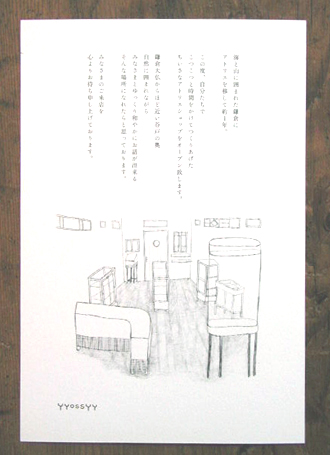 海と山に囲まれた鎌倉に
アトリエを移して約1年。
この度、自分たちで
こつこつと時間をかけてつくりあげた
ちいさなアトリエショップをオープン致します。
鎌倉大仏からほど近い谷戸の奥
自然に囲まれながら
みなさまとゆっくり和やかにお話が出来る
そんな場所になれたらと思っております。
みなさまのご来店を
心よりお待ち申し上げております。
YYOSSYY